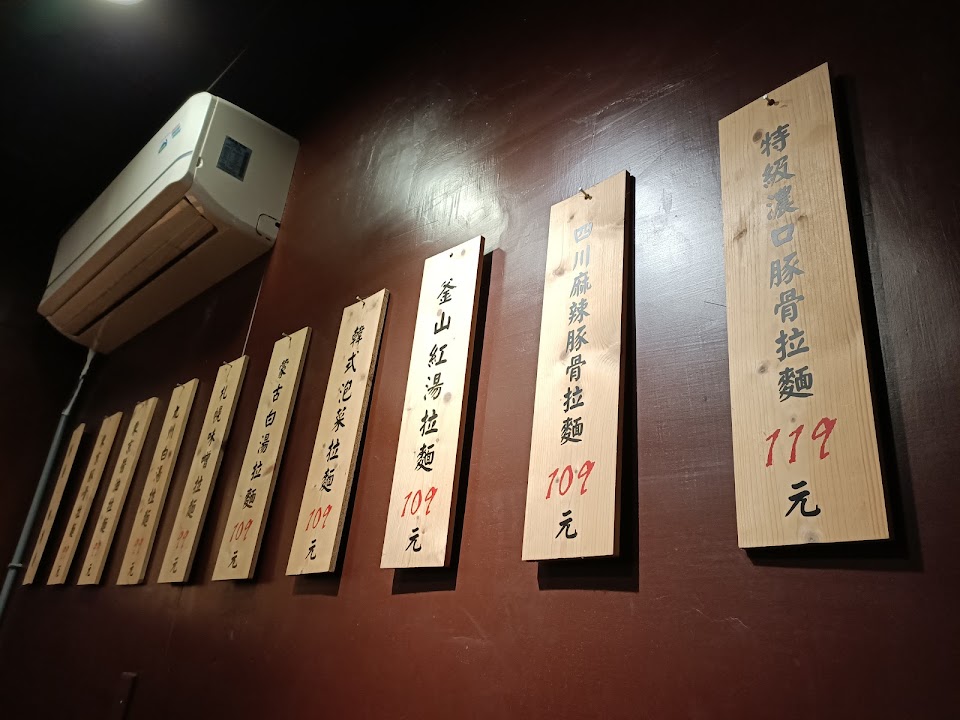 特級濃口豚骨拉麵 119元
四川麻辣豚骨拉麵 109元
釜山紅湯拉麵 109元
韓式泡菜拉麵 109元
蒙古白湯拉麵 109元
札幌味噌拉麵 99元
九州白湯拉麵 99元